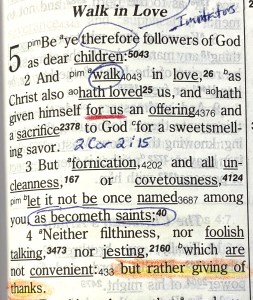 Walk in Love
Imitators
5 pimBe aye therefore followers of God
as dear children:5043
2 And pim bwalk4043 in love,26 bas
Christ also aohath loved25 us, and aohath
given himself for us an offering4376 and
a sacrifice2378 to God cfor a sweetsmell-
ing savor. 2 Cor 2:15
3 But afornication,4202 and all un-
cleanness,167 or covetousness,4124
pim blet it not be once named3687 among
you as becometh saints;40
4 aNeither filthiness, nor foolish
talking,3473 nor jesting,2160 bwhich are
not convenient:433 but rather giving of
thanks.